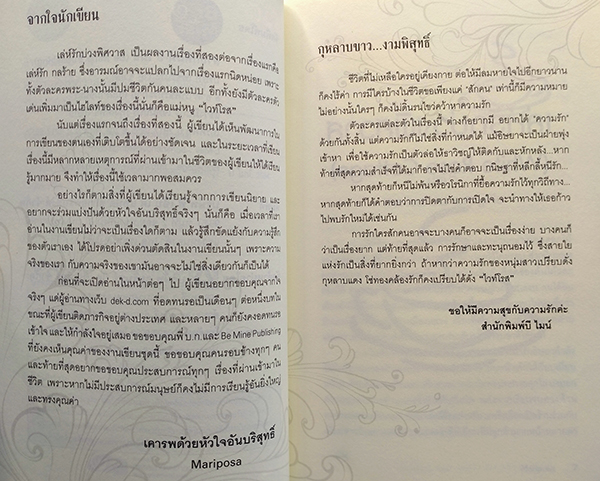 จากใจนักเขียน
เล่ห์รักบ่วงพิศวาส เป็นผลงานเรื่องที่สองต่อจากเรื่องแรกคือ
เล่ห์รัก กลร้าย ซึ่งอารมณ์อาจจะแปลกไปจากเรื่องแรกนิดหน่อย เพราะ
ทั้งตัวละครพระ-นางนั้นมีปมชีวิตกันคนละแบบ อีกทั้งยังมีตัวละครตัว
เด่นเพิ่มมาเป็นไฮไลท์ของเรื่องนี้นั่นก็คือแม่หนู "ไวท์โรส"
นับแต่เรื่องแรกจนถึงเรื่องที่สองนี้ ผู้เขียนได้เห็นพัฒนาการใน
การเขียนของตนเองที่เติบโตขึ้นได้อย่างชัดเจน และในระยะเวลาที่เขียน
เรื่องนี้มีหลากหลายเหตุการณ์ที่ผ่านเข้ามาในชีวิตของผู้เขียนให้ได้เรียน
รู้มากมาย จึงทำให้เรื่องนี้ใช้เวลามากพอสมควร
อย่างไรก็ตามสิ่งที่ผู้เขียนได้เรียนรู้จากการเขียนนิยาย และ
อยากจะร่วมแบ่งปันด้วยหัวใจอันบริสุทธิ์จริงๆ นั่นก็คือ เมื่อเวลาที่เรา
อ่านในงานเขียนไม่ว่าจะเป็นเรื่องใดก็ตาม แล้วรู้สึกขัดแย้งกับความรู้สึก
ของตัวเราเอง ได้โปรดอย่าเพิ่งด่วนตัดสินในงานเขียนนั้นๆ เพราะความ
จริงของเรา กับความจริงของเขามันอาจจะไม่ใช่สิ่งเดียวกันก็เป็นได้
ก่อนที่จะเปิดอ่านในหน้าต่อๆ ไป ผู้เขียนอยากขอบคุณจาก
จริงๆ แด่ผู้อ่านทางเว็บ dek-d.com ที่อดทนรอเป็นเดือนๆ ต่อหนึ่งบทใน
ขณะที่ผู้เขียนติดภารกิจอยู่ต่างประเทศ และหลายๆ คนก็ยังคงอดทนรอ
เข้าใจ และให้กำลังใจอยู่เสมอ ขอขอบคุณพี่ บ.ก. และ Be Mine Publishing
ที่ยังคงเห็นคุณค่าของงานเขียนชุดนี้ ขอขอบคุณคนรอบข้างทุกๆ คน
และท้ายที่สุดอยากขอขอบคุณประสบการณ์ทุกๆ เรื่องที่ผ่านเข้ามาใน
ชีวิต เพราะหากไม่มีประสบการณ์มนุษย์ก็คงไม่มีการเรียนรู้อันยิ่งใหญ่
และทรงคุณค่า
เคารพด้วยหัวใจอันบริสุทธิ์
Mariposa
กุหลาบขาว...งามพิสุทธิ์
ชีวิตที่ไม่เหลือใครอยู่เคียงกาย ต่อให้มีลมหายใจไปอีกยาวนาน
ก็คงไร้ค่า การมีใครบ้างในชีวิตขอเพียงแค่ "สักคน" เท่านี้ก็มีความหมาย
ไม่อย่างนั้นใครๆ ก็คงไม่ดิ้นรนไขว่คว้าหาความรัก
ตัวละครแต่ละตัวในเรื่องนี้ ต่างก็อยากมี อยากได้ "ความรัก"
ด้วยกันทั้งสิ้น แต่ความรักก็ไม่ใช่สิ่งที่กำหนดได้ แม้อิษยาจะเป็นฝ่ายพุ่ง
เข้าหา เพื่อใช้ความรักเป็นตัวล่อให้ธาวิชญ์ให้ติดกับและหักหลัง...หาก
ท้ายที่สุดความสำเร็จที่ได้มาก็อาจไม่ใช่คำตอบ กนิษฐาที่หลีกลี้หนีรัก...
หากสุดท้ายก็หนีไม่พ้นหรือวโรนิกาที่ยื้อความรักไว้ทุกวิถีทาง...
หากสุดท้ายก็ได้คำตอบว่าการปิดตากับการเปิดใจ จะนำทางให้เธอก้าว
ไปพบรักใหม่ได้เช่นกัน
การรักใครสักคนอาจจะบางคนก็อาจจะเป็นเรื่องง่าย บางคนก็
ว่าเป็นเรื่องยาก แต่ท้ายที่สุดแล้ว การรักษาและทะนุถนอมไว้ ซึ่งสายใย
แห่งรักเป็นสิ่งที่ยากยิ่งกว่า ถ้าหากว่าความรักของหนุ่มสาวเปรียบดั่ง
กุหลาบแดง โซ่ทองคล้องรักก็คงเปรียบได้ดั่ง "ไวท์โรส"
ขอให้มีความสุขกับความรักค่ะ
สำนักพิมพ์บี ไมน์